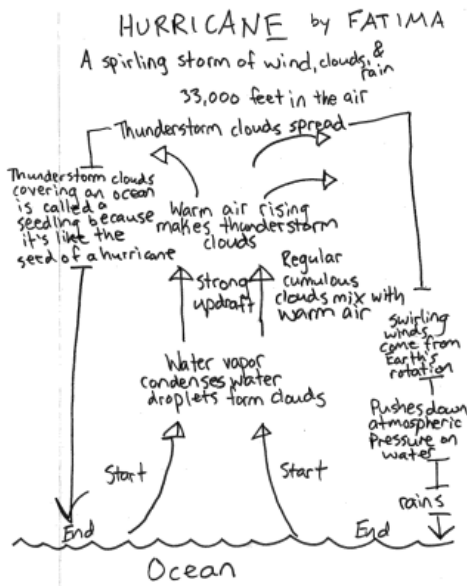 HURRICANE by FATIMA
A spirling storm of wind, clouds, &
rain
33,000 feet in the air
Thunderstorm clouds spread
Thunderstorm clouds
covering an ocean
is called a
seedling because
it's like the
seed of a hurricane
Warm air rising
makes thunderstorm
clouds
strong
updraft
Regular
cumulous
clouds mix with
warm air
swirling
winds
come from
Earth's
rotation
Water vapor
condenses water
droplets form clouds
Pushes down
atmospheric
pressure on
water
Start
Start
rains
End
End
Ocean